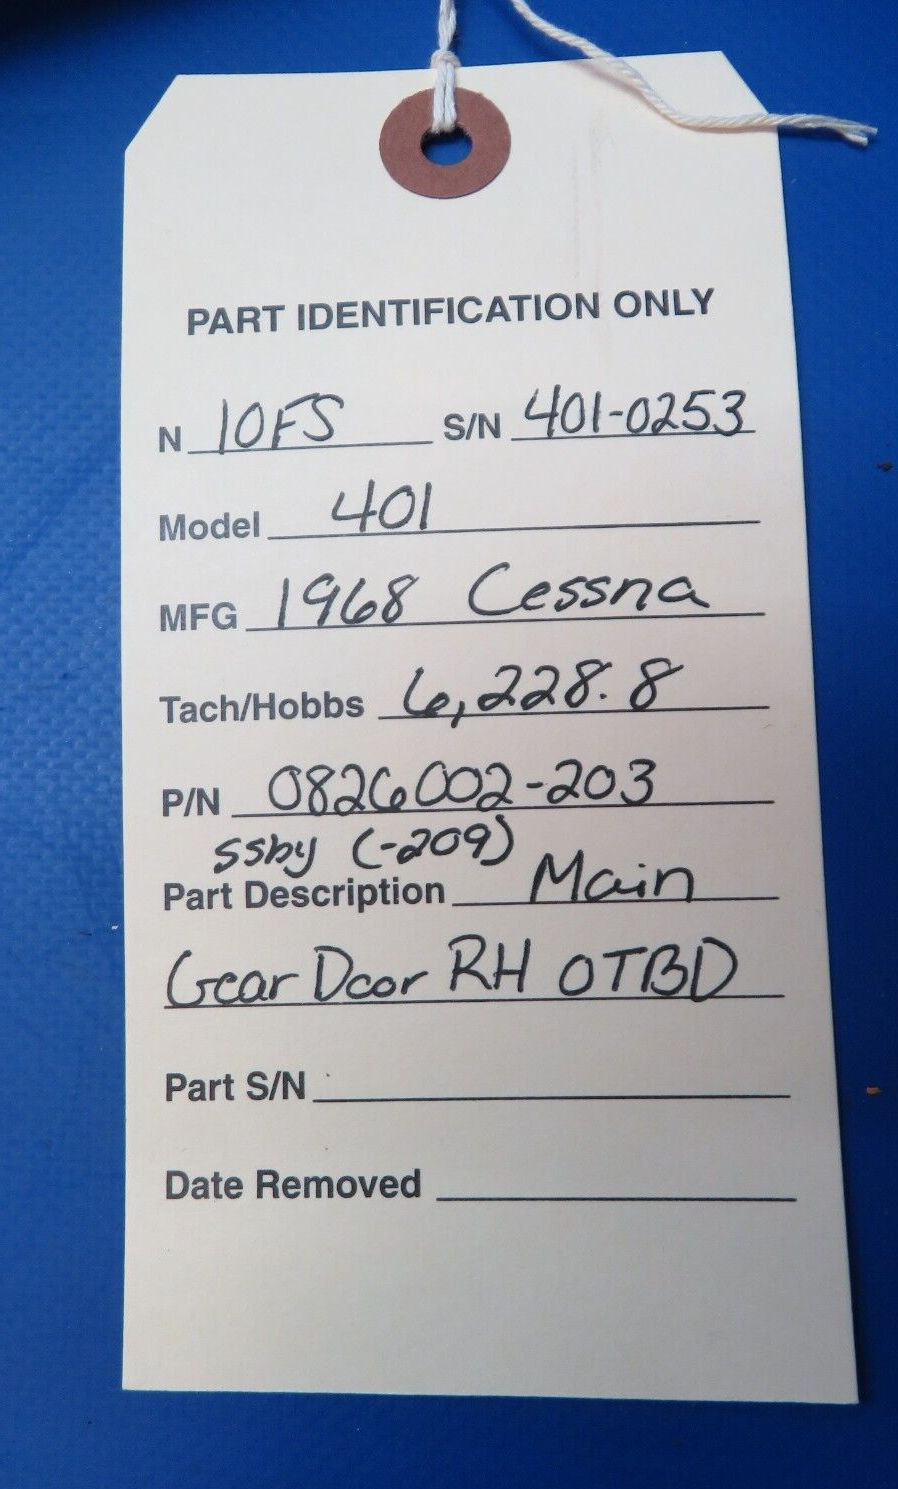 PART IDENTIFICATION ONLY
N 10FS S/N 401-0253
Model 401
MFG 1968 Cessna
Tach/Hobbs 6,228.8
P/N 0826002-203
ssby (-209)
Part Description Main
Gear Door RH OTBD
Part S/N
Date Removed